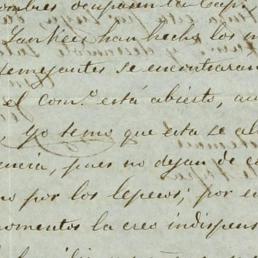 ombres ocuparen la Capi
Yankees han hecho los m
semejantes se encontraran
el Com.º está abierto, au
Yo temo que esta se al
encia, pues no dejan de c
no por los leperos; por e
momentos la creo indispens